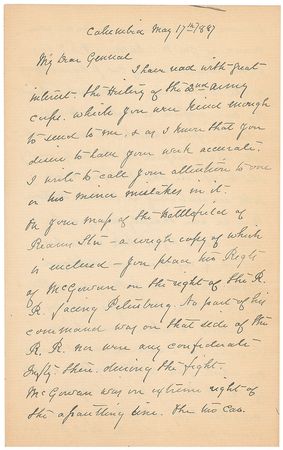 Columbia May 17th 1887
My Dear General
I have read with great
interest the History of the 2nd Army
Corps which you were kind enough
to send to me, & as I know that you
desire to have your work accurate
I write to call your attention to one
or two minor mistakes in it.
On your map of the battlefield of
Reams Stn - a rough copy of which
is inclosed - you place his Right
of McGowan on the right of the R.
R. facing Petersburg. No part of his
command was on that side of the
R. R. nor were any confederate
Infty there, during the fight.
McGowan was on extreme right of
the assaulting line. The two Cav.